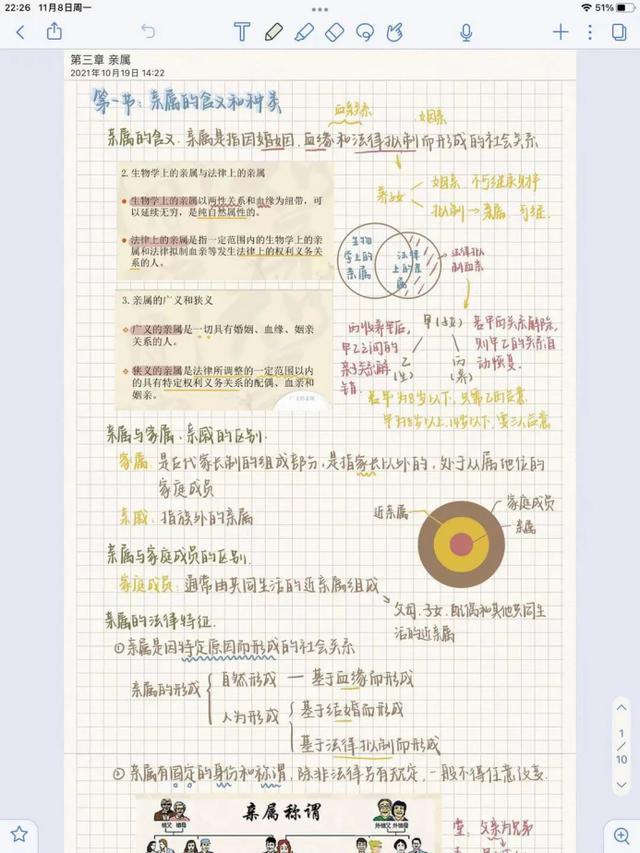 22:26 11月8日周一
51%
第三章 亲属
2021年10月19日 14:22
第一节：亲属的含义和种类
血亲关系
姻亲
亲属的含义：亲属是指因婚姻、血缘和法律拟制而形成的社会关系
养子女
姻亲 不可继承财产
拟制→亲属 可继.
2. 生物学上的亲属与法律上的亲属
生物学上的亲属以两性关系和血缘为纽带，可
以延续无穷，是纯自然属性的。
法律上的亲属是指一定范围内的生物学上的亲
属和法律拟制血亲等发生法律上的权利义务关
系的人。
生物
学上的
亲属
法律
上的亲
属
法律拟
制血亲
3. 亲属的广义和狭义
广义的亲属是一切具有婚姻、血缘、姻亲
关系的人。
狭义的亲属是法律所调整的一定范围以内
的具有特定权利义务关系的配偶、血亲和
姻亲。
丙收养甲后，
甲乙之间的
亲子关系解
销.
甲(子女)
乙
(生)
丙
(养)
若甲丙关系解除，
则甲乙的关系自
动恢复.
若甲为8岁以下，只需乙丙合意
甲为8岁以上，14岁以下，要三人合意
亲属与家属、亲戚的区别.
家属：是古代家长制的组成部分，是指家长以外的，处于从属地位的
家庭成员
亲戚：指族外的亲属
近亲属
家庭成员
亲属
亲属与家庭成员的区别.
家庭成员：通常由共同生活的近亲属组成
父母、子女、配偶和其他共同生
活的近亲属
亲属的法律特征.
①亲属是因特定原因而形成的社会关系
亲属的形成
自然形成 — 基于血缘而形成
人为形成
基于结婚而形成
基于法律拟制而形成
②亲属有固定的身份和称谓，除非法律另有规定，一般不得任意改变.
亲属称谓
祖父 祖母
外祖父 外祖母
堂：父亲为兄弟
1
10